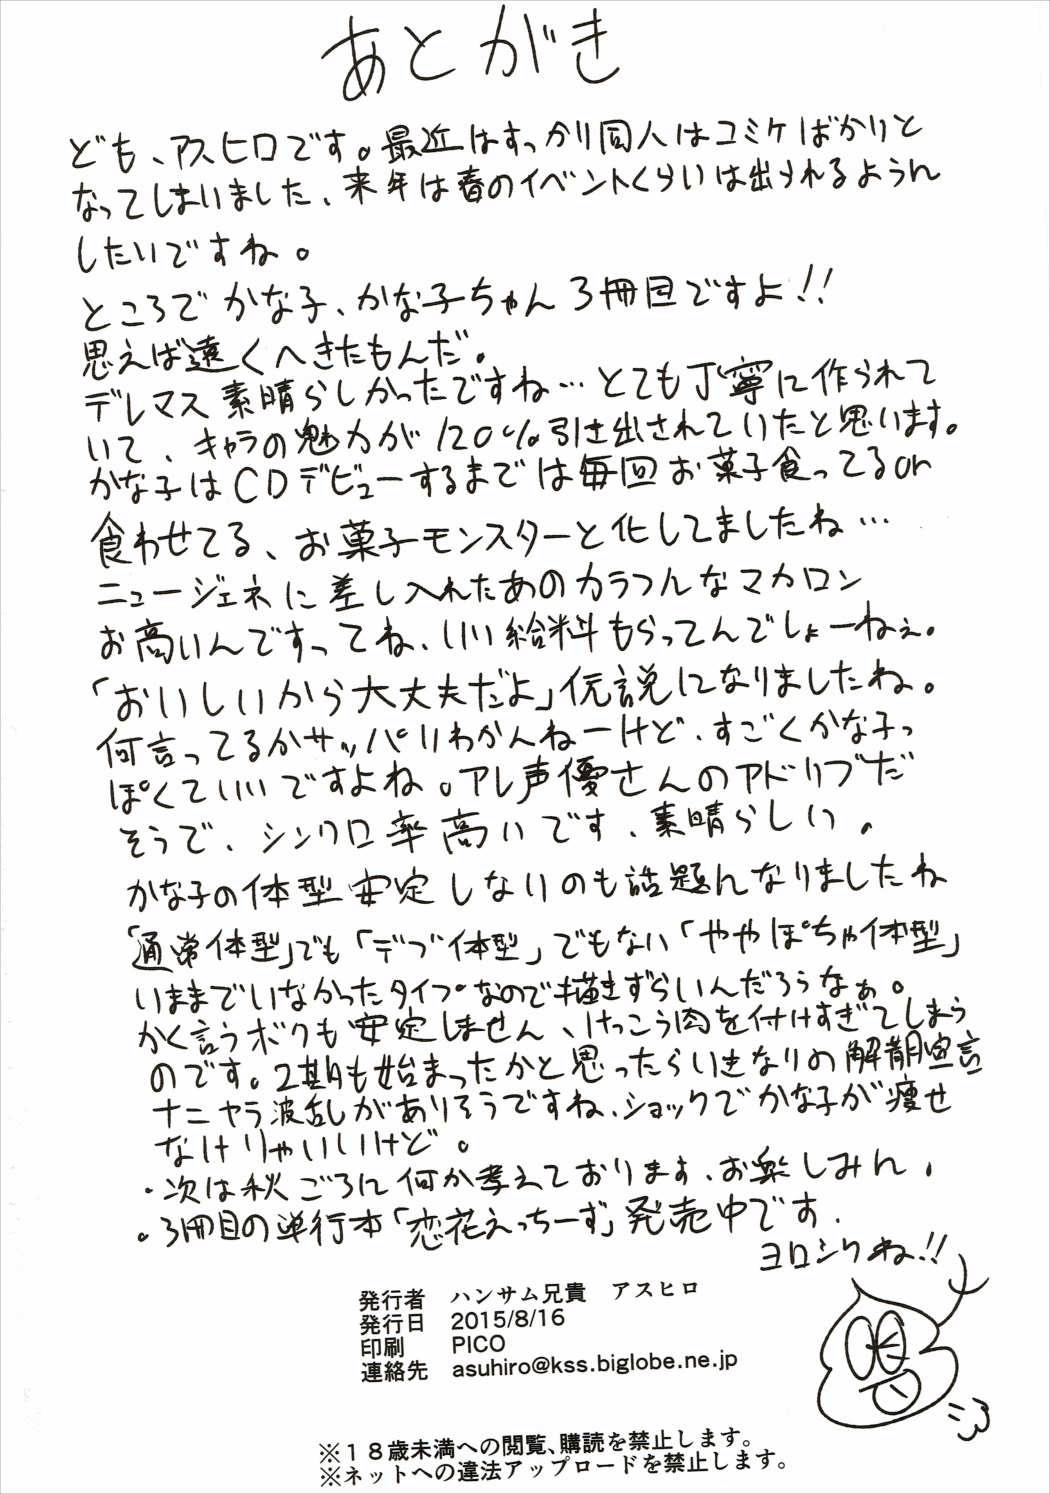 あとがき
ども、アスヒロです。最近はすっかり同人はコミケばかりと
なってしまいました、来年は春のイベントくらいは出られるように
したいですね。
ところでかな子、かな子ちゃん3冊目ですよ!!
思えば遠くへきたもんだ。
デレマス素晴らしかったですね…とても丁寧に作られて
いて、キャラの魅力が120%引き出されていたと思います。
かな子はCDデビューするまでは毎回お菓子食ってるor
食わせてる、お菓子モンスターと化してましたね…
ニュージェネに差し入れたあのカラフルなマカロン
お高いんですってね、いい給料もらってんでしょーねぇ。
「おいしいから大丈夫だよ」伝説になりましたね。
何言ってるかサッパリわかんねーけど、すごくかな子っ
ぽくていいですよね。アレ声優さんのアドリブだ
そうで、シンクロ率高いです、素晴らしい。
かな子の体型安定しないのも話題になりましたね
「通常体型」でも「デブ体型」でもない「ややぽちゃ体型」
いままでいなかったタイプなので描きずらいんだろうなぁ。
かく言うボクも安定しません、けっこう肉を付けすぎてしまう
のです。2期も始まったかと思ったらいきなりの解散宣言
ナニヤラ波乱がありそうですね、ショックでかな子が痩せ
なけりゃいいけど。
・次は秋ごろに何か考えております、お楽しみに。
・3冊目の単行本「恋花えっちーず」発売中です.
ヨロシクね!!
発行者 ハンサム兄貴 アスヒロ
発行日 2015/8/16
印刷 PICO
連絡先 asuhiro@kss.biglobe.ne.jp
※18歳未満への閲覧、購読を禁止します。
※ネットへの違法アップロードを禁止します。